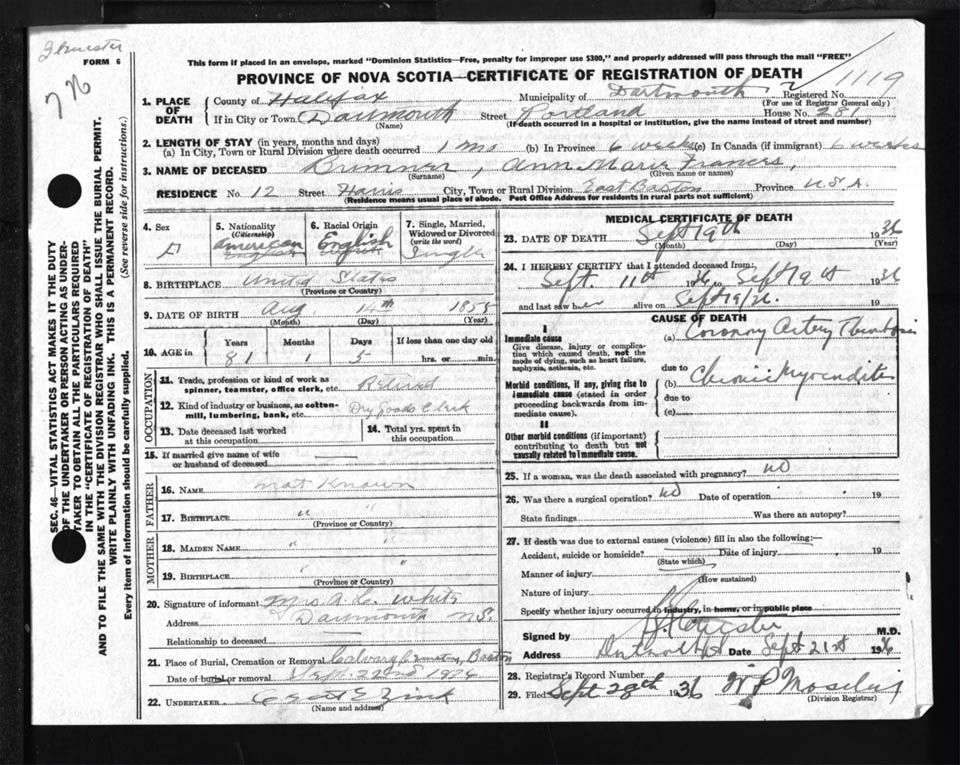 FORM 6
776
This form if placed in an envelope, marked "Dominion Statistics—Free, penalty for improper use $300," and properly addressed will pass through the mail "FREE"
PROVINCE OF NOVA SCOTIA—CERTIFICATE OF REGISTRATION OF DEATH
1119
SEC. 46—VITAL STATISTICS ACT MAKES IT THE DUTY
OF THE UNDERTAKER OR PERSON ACTING AS UNDER-
TAKER TO OBTAIN ALL THE PARTICULARS REQUIRED
IN THE "CERTIFICATE OF REGISTRATION OF DEATH"
AND TO FILE THE SAME WITH THE DIVISION REGISTRAR WHO SHALL ISSUE THE BURIAL PERMIT.
WRITE PLAINLY WITH UNFADING INK. THIS IS A PERMANENT RECORD.
Every item of information should be carefully supplied. (See reverse side for instructions.)
1. PLACE OF DEATH
County of Halifax Municipality of Dartmouth Registered No.
(For use of Registrar General only)
If in City or Town Dartmouth Street Portland House No. 281
(Name) (If death occurred in a hospital or institution, give the name instead of street and number)
2. LENGTH OF STAY (in years, months and days)
(a) In City, Town or Rural Division where death occurred 1 mo (b) In Province 6 weeks (c) In Canada (if immigrant) 6 weeks
3. NAME OF DECEASED Brimner, Ann Marie Frances,
(Surname) (Given name or names)
RESIDENCE No. 12 Street Harris City, Town or Rural Division East Boston Province U.S.A.
(Residence means usual place of abode. Post Office Address for residents in rural parts not sufficient)
4. Sex F
5. Nationality (Citizenship) American English
6. Racial Origin English English
7. Single, Married, Widowed or Divorced (write the word) Single
8. BIRTHPLACE United States
(Province or Country)
9. DATE OF BIRTH Aug. 14th 1855
(Month) (Day) (Year)
10. AGE in Years Months Days If less than one day old
81 1 5 hrs. or min.
OCCUPATION
11. Trade, profession or kind of work as spinner, teamster, office clerk, etc. Retired
12. Kind of industry or business, as cotton-mill, lumbering, bank, etc. Dry Goods Clerk
13. Date deceased last worked at this occupation
14. Total yrs. spent in this occupation
15. If married give name of wife or husband of deceased —
FATHER
16. NAME Not Known
17. BIRTHPLACE " "
(Province or Country)
MOTHER
18. MAIDEN NAME " "
19. BIRTHPLACE " "
(Province or Country)
20. Signature of informant Mrs A. L. White
Address Dartmouth N.S.
Relationship to deceased
21. Place of Burial, Cremation or Removal Calvary Cemetery, Boston
Date of burial or removal Sept. 22nd 1936
22. UNDERTAKER Zink
(Name and address)
MEDICAL CERTIFICATE OF DEATH
23. DATE OF DEATH Sept 19th 1936
(Month) (Day) (Year)
24. I HEREBY CERTIFY that I attended deceased from:
Sept. 11th 1936 to Sept 19th 1936
and last saw her alive on Sept 19/36. 19
CAUSE OF DEATH
I
Immediate cause
Give disease, injury or complication which caused death, not the mode of dying, such as heart failure, asphyxia, asthenia, etc.
(a) Coronary Artery Thrombosis
due to
Morbid conditions, if any, giving rise to immediate cause (stated in order proceeding backwards from immediate cause).
(b) Chronic Myocarditis
due to
(c)
II
Other morbid conditions (if important) contributing to death but not causally related to immediate cause.
25. If a woman, was the death associated with pregnancy? no
26. Was there a surgical operation? no Date of operation 19
State findings Was there an autopsy?
27. If death was due to external causes (violence) fill in also the following:—
Accident, suicide or homicide? Date of injury 19
(State which)
Manner of injury
(How sustained)
Nature of injury
Specify whether injury occurred in industry, in home, or in public place
Signed by M.D.
Address Dartmouth NS Date Sept 21st 1936
28. Registrar's Record Number
29. Filed Sept 28th 1936
(Division Registrar)